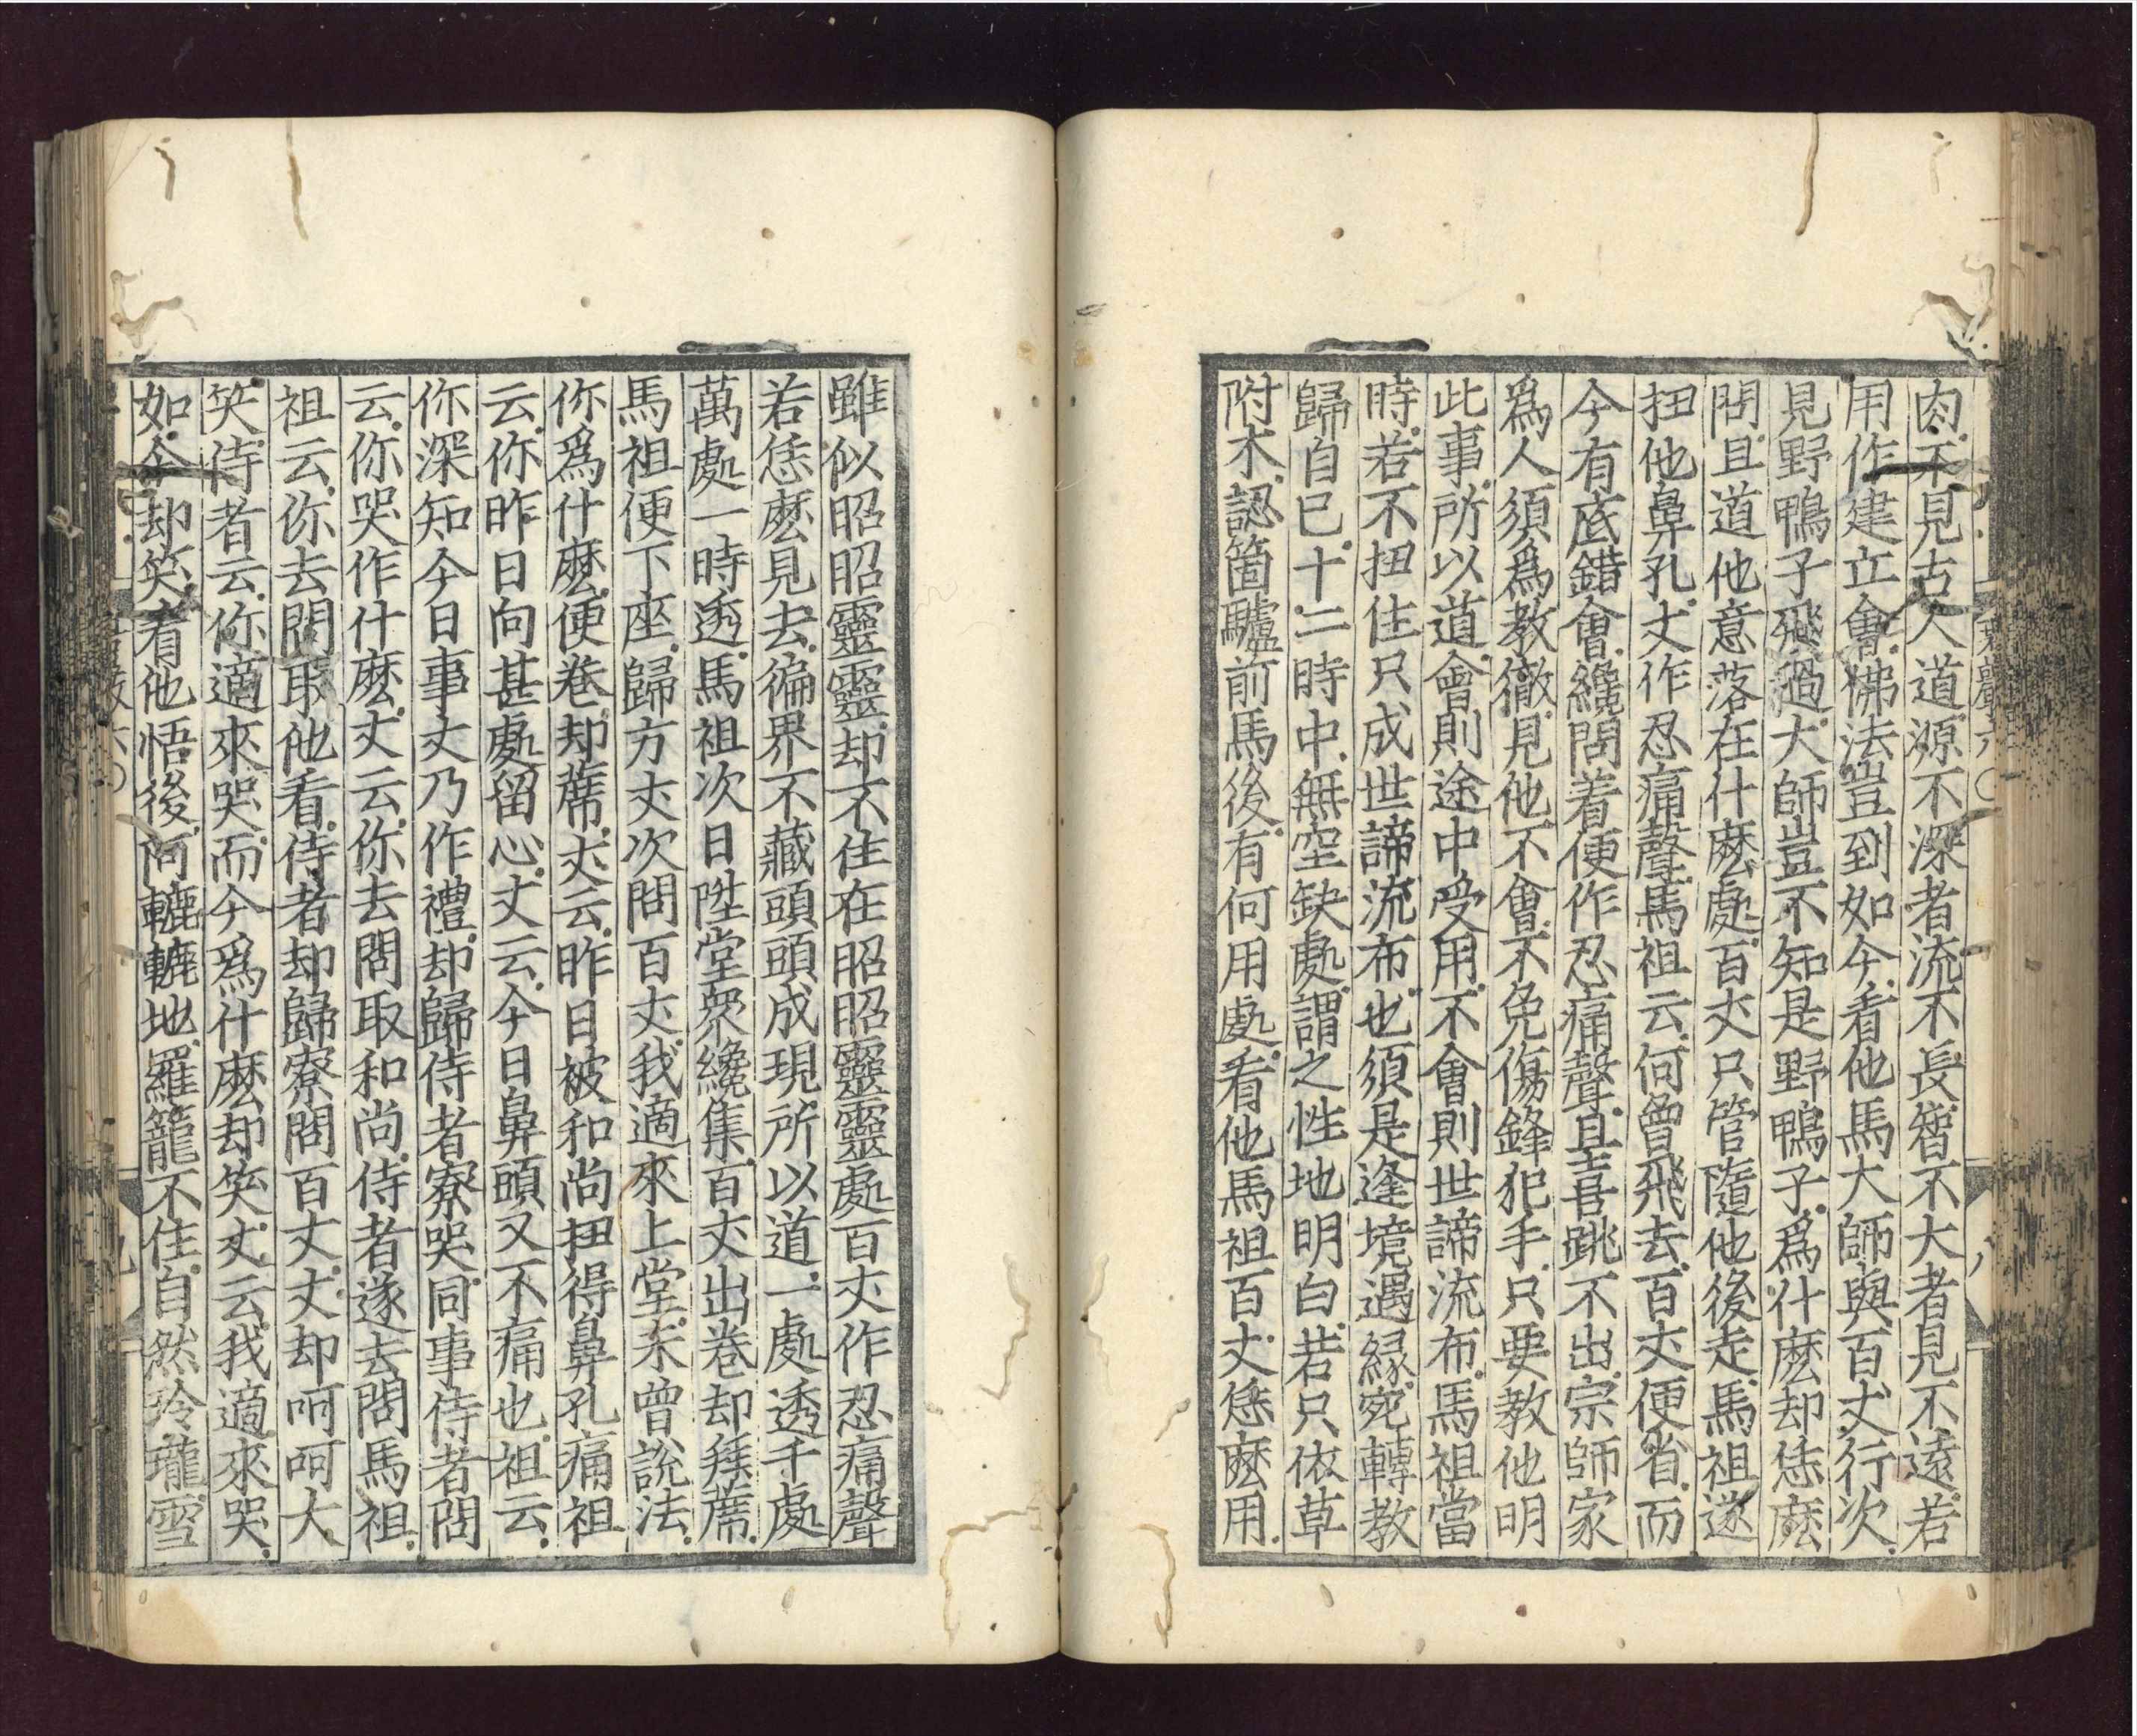 肉不見古人道源不深者流不長智不大者見不遠若
用作建立會佛法豈到如今看他馬大師與百丈行次
見野鴨子飛過大師豈不知是野鴨子爲什麽却恁麽
問且道他意落在什麽處百丈只管隨他後走馬祖遂
扭他鼻孔丈作忍痛聲馬祖云何曾飛去百丈便省而
今有底錯會纔問着便作忍痛聲且喜跳不出宗師家
爲人須爲教徹見他不會不免傷鋒犯手只要教他明
此事所以道會則途中受用不會則世諦流布馬祖當
時若不扭住只成世諦流布也須是逢境遇緣宛轉教
歸自己十二時中無空缺處謂之性地明白若只依草
附木認箇驢前馬後有何用處看他馬祖百丈恁麽用
雖似昭昭靈靈却不住在昭昭靈靈處百丈作忍痛聲
若恁麽見去徧界不藏頭頭成現所以道一處透千處
萬處一時透馬祖次日陞堂衆纔集百丈出卷却拜蓆
馬祖便下座歸方丈次問百丈我適來上堂未曾說法
你爲什麽便卷却蓆丈云昨日被和尚扭得鼻孔痛祖
云你昨日向甚處留心丈云今日鼻頭又不痛也祖云
你深知今日事丈乃作禮却歸侍者寮哭同事侍者問
云你哭作什麽丈云你去問取和尚侍者遂去問馬祖
祖云你去問取他看侍者却歸寮問百丈丈却呵呵大
笑侍者云你適來哭而今爲什麽却笑丈云我適來哭
如今却笑看他悟後阿轆轆地羅籠不住自然玲瓏雪